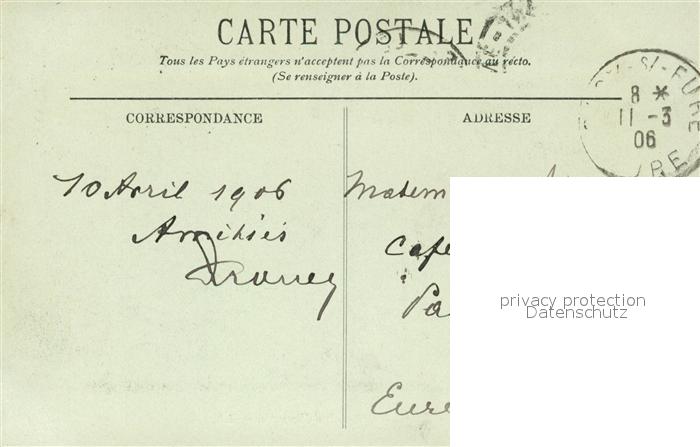 CARTE POSTALE
Tous les Pays étrangers n'acceptent pas la Correspondance au recto.
(Se renseigner à la Poste).
CORRESPONDANCE
ADRESSE
8 *
11 - 3
06
S/-EURE
10 Avril 1906
Amitiés
Madem
Cafe
Pa
Eure
privacy protection
Datenschutz